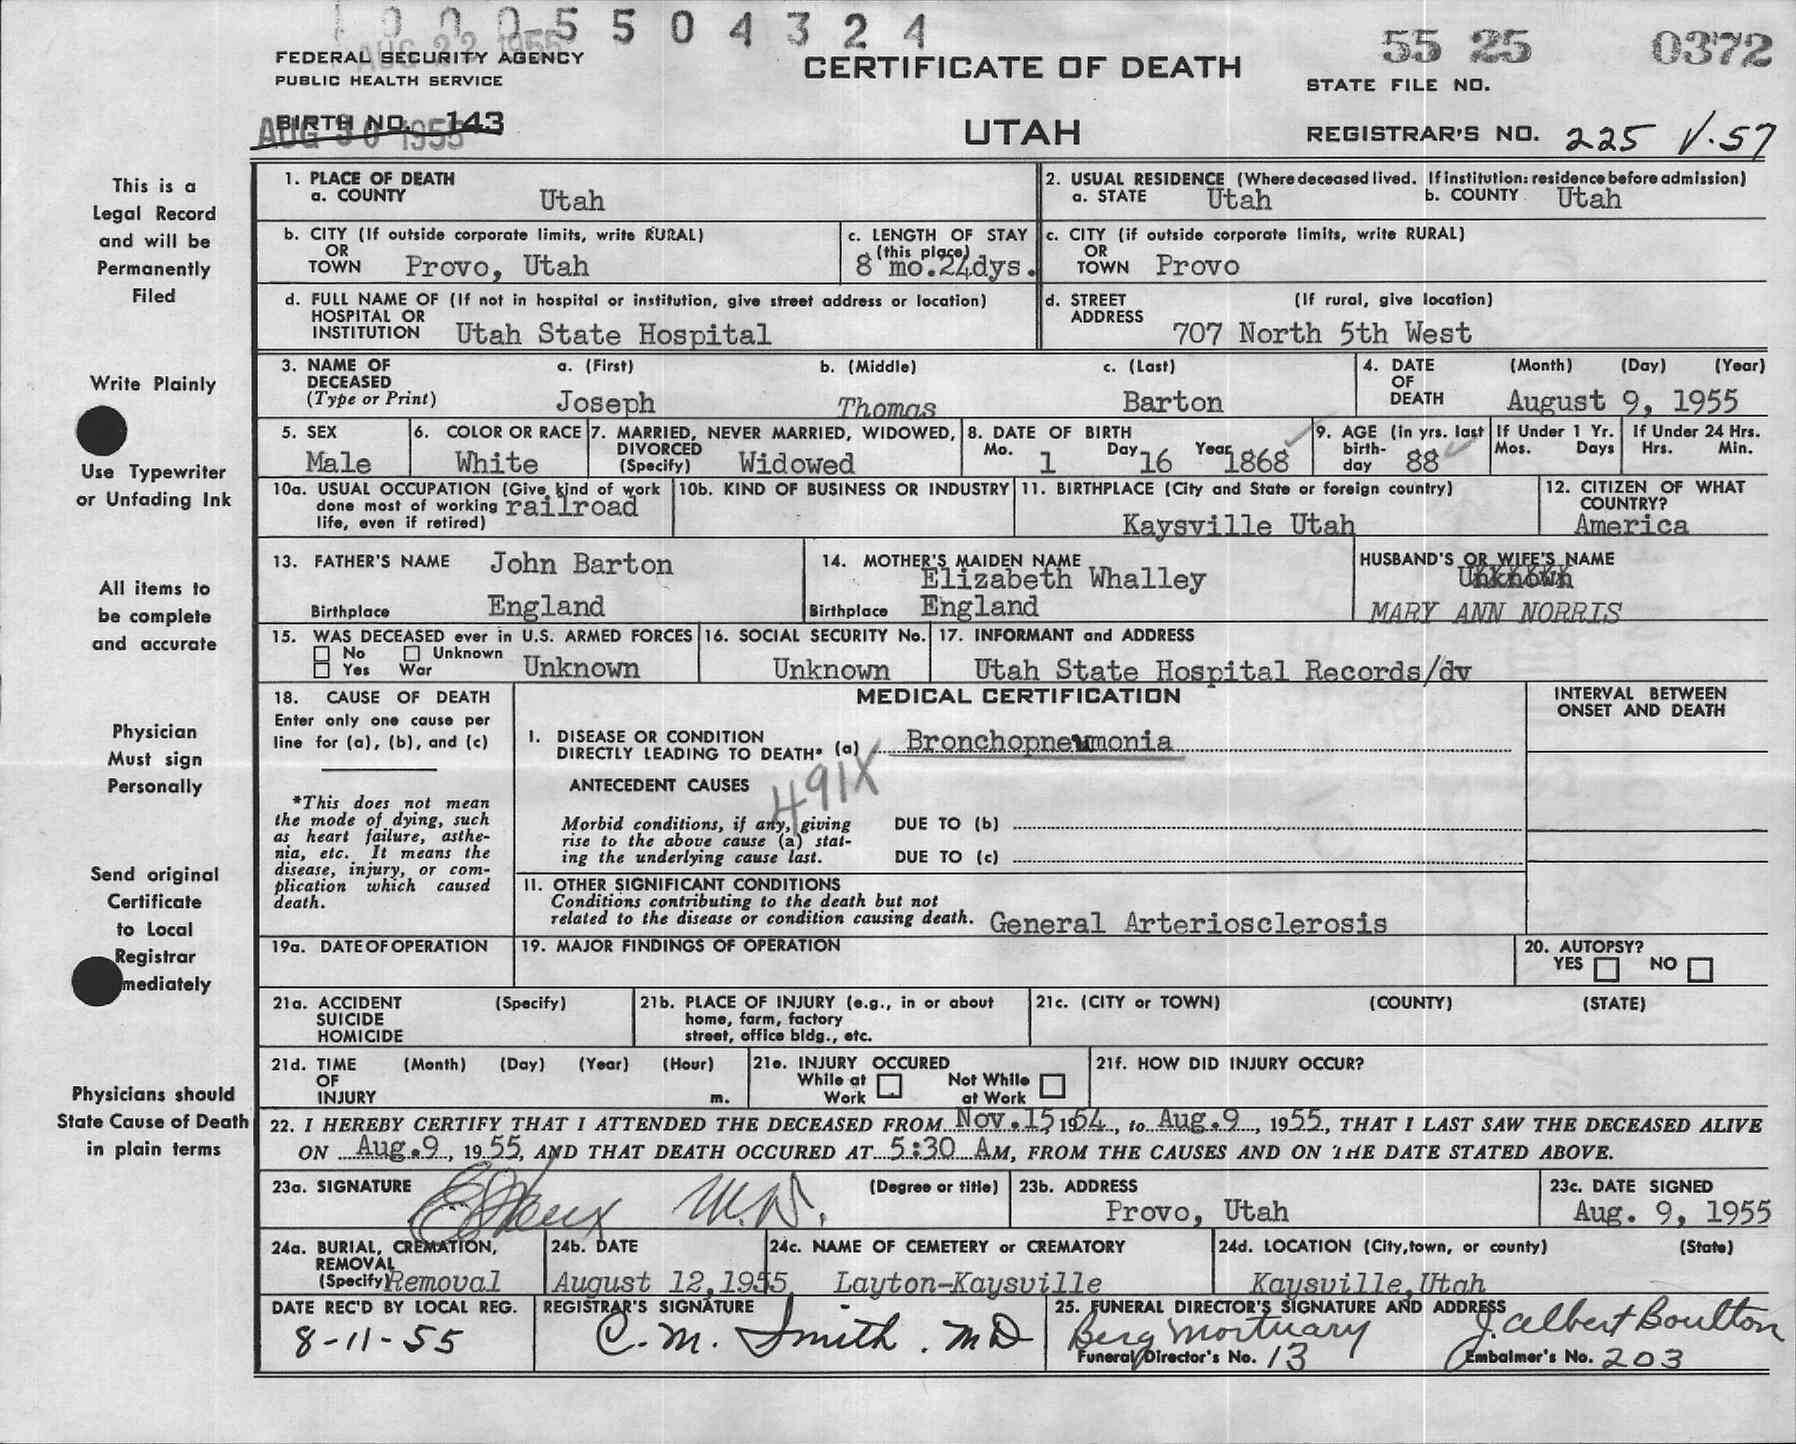 1 0 0 0 5 5 0 4 3 2 4
AUG 22 1955
55 25 0372
FEDERAL SECURITY AGENCY
PUBLIC HEALTH SERVICE
CERTIFICATE OF DEATH
STATE FILE NO.
BIRTH NO. 143
AUG 30 1955
UTAH
REGISTRAR'S NO. 225 V.57
This is a
Legal Record
and will be
Permanently
Filed
Write Plainly
Use Typewriter
or Unfading Ink
All items to
be complete
and accurate
Physician
Must sign
Personally
Send original
Certificate
to Local
Registrar
mediately
Physicians should
State Cause of Death
in plain terms
1. PLACE OF DEATH
a. COUNTY Utah
2. USUAL RESIDENCE (Where deceased lived. If institution: residence before admission)
a. STATE Utah b. COUNTY Utah
b. CITY (If outside corporate limits, write RURAL)
OR
TOWN Provo, Utah
c. LENGTH OF STAY
(this place)
8 mo.24dys.
c. CITY (if outside corporate limits, write RURAL)
OR
TOWN Provo
d. FULL NAME OF (If not in hospital or institution, give street address or location)
HOSPITAL OR
INSTITUTION Utah State Hospital
d. STREET (If rural, give location)
ADDRESS
707 North 5th West
3. NAME OF a. (First) b. (Middle) c. (Last)
DECEASED
(Type or Print) Joseph Thomas Barton
4. DATE (Month) (Day) (Year)
OF
DEATH August 9, 1955
5. SEX
Male
6. COLOR OR RACE
White
7. MARRIED, NEVER MARRIED, WIDOWED,
DIVORCED
(Specify) Widowed
8. DATE OF BIRTH
Mo. 1 Day 16 Year 1868
9. AGE (in yrs. last
birth-
day 88
If Under 1 Yr.
Mos. Days
If Under 24 Hrs.
Hrs. Min.
10a. USUAL OCCUPATION (Give kind of work
done most of working railroad
life, even if retired)
10b. KIND OF BUSINESS OR INDUSTRY
11. BIRTHPLACE (City and State or foreign country)
Kaysville Utah
12. CITIZEN OF WHAT
COUNTRY?
America
13. FATHER'S NAME John Barton
Birthplace England
14. MOTHER'S MAIDEN NAME
Elizabeth Whalley
Birthplace England
HUSBAND'S OR WIFE'S NAME
Unknown
MARY ANN NORRIS
15. WAS DECEASED ever in U.S. ARMED FORCES
No Unknown
Yes War Unknown
16. SOCIAL SECURITY No.
Unknown
17. INFORMANT and ADDRESS
Utah State Hospital Records/dv
18. CAUSE OF DEATH
Enter only one cause per
line for (a), (b), and (c)
*This does not mean
the mode of dying, such
as heart failure, asthe-
nia, etc. It means the
disease, injury, or com-
plication which caused
death.
MEDICAL CERTIFICATION
INTERVAL BETWEEN
ONSET AND DEATH
I. DISEASE OR CONDITION
DIRECTLY LEADING TO DEATH* (a) Bronchopneumonia
ANTECEDENT CAUSES
491X
Morbid conditions, if any, giving
rise to the above cause (a) stat-
ing the underlying cause last.
DUE TO (b)
DUE TO (c)
II. OTHER SIGNIFICANT CONDITIONS
Conditions contributing to the death but not
related to the disease or condition causing death. General Arteriosclerosis
19a. DATE OF OPERATION
19. MAJOR FINDINGS OF OPERATION
20. AUTOPSY?
YES NO
21a. ACCIDENT (Specify)
SUICIDE
HOMICIDE
21b. PLACE OF INJURY (e.g., in or about
home, farm, factory
street, office bldg., etc.
21c. (CITY or TOWN) (COUNTY) (STATE)
21d. TIME (Month) (Day) (Year) (Hour)
OF
INJURY m.
21e. INJURY OCCURED
While at Not While
Work at Work
21f. HOW DID INJURY OCCUR?
22. I HEREBY CERTIFY THAT I ATTENDED THE DECEASED FROM Nov.15, 1954, to Aug.9, 1955, THAT I LAST SAW THE DECEASED ALIVE
ON Aug.9, 1955, AND THAT DEATH OCCURED AT 5:30 AM, FROM THE CAUSES AND ON THE DATE STATED ABOVE.
23a. SIGNATURE M.D. (Degree or title)
23b. ADDRESS
Provo, Utah
23c. DATE SIGNED
Aug. 9, 1955
24a. BURIAL, CREMATION,
REMOVAL
(Specify) Removal
24b. DATE
August 12,1955
24c. NAME OF CEMETERY or CREMATORY
Layton-Kaysville
24d. LOCATION (City,town, or county) (State)
Kaysville,Utah
DATE REC'D BY LOCAL REG.
8-11-55
REGISTRAR'S SIGNATURE
C. M. Smith. MD
25. FUNERAL DIRECTOR'S SIGNATURE AND ADDRESS
Berg Mortuary J. Albert Boulton
Funeral Director's No. 13 Embalmer's No. 203